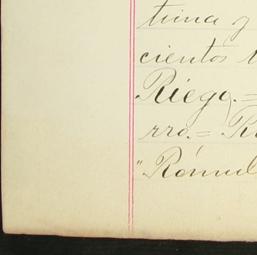 tina y
cientos
Riego.=
rro.= R
"Rómul